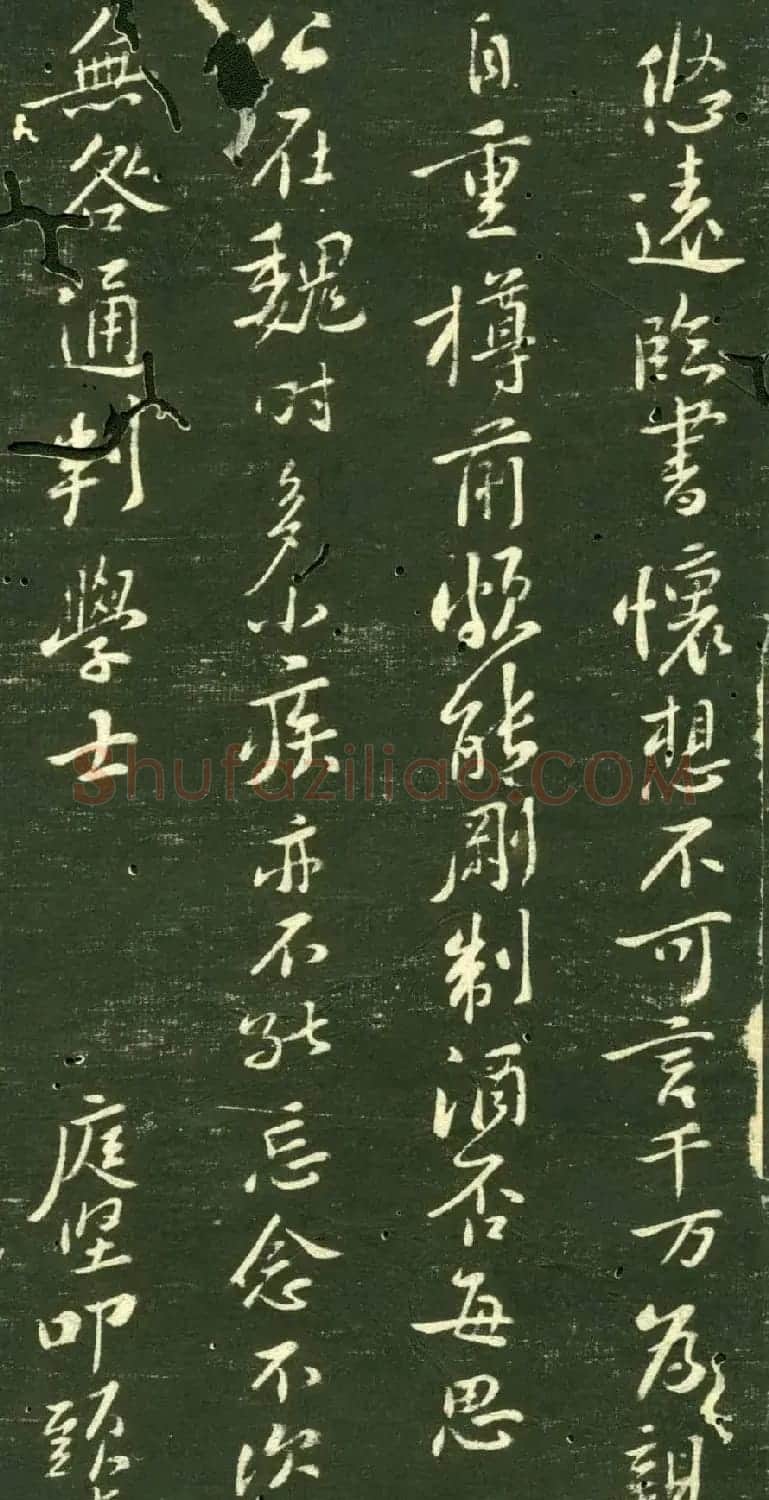 悠遠臨書懷想不可言千万為親
自重樽前頗能剛制酒否每思
公在魏時多小疾亦不能忘念不次
無咎通判學士 庭堅叩頭
Shufaziliao.COM